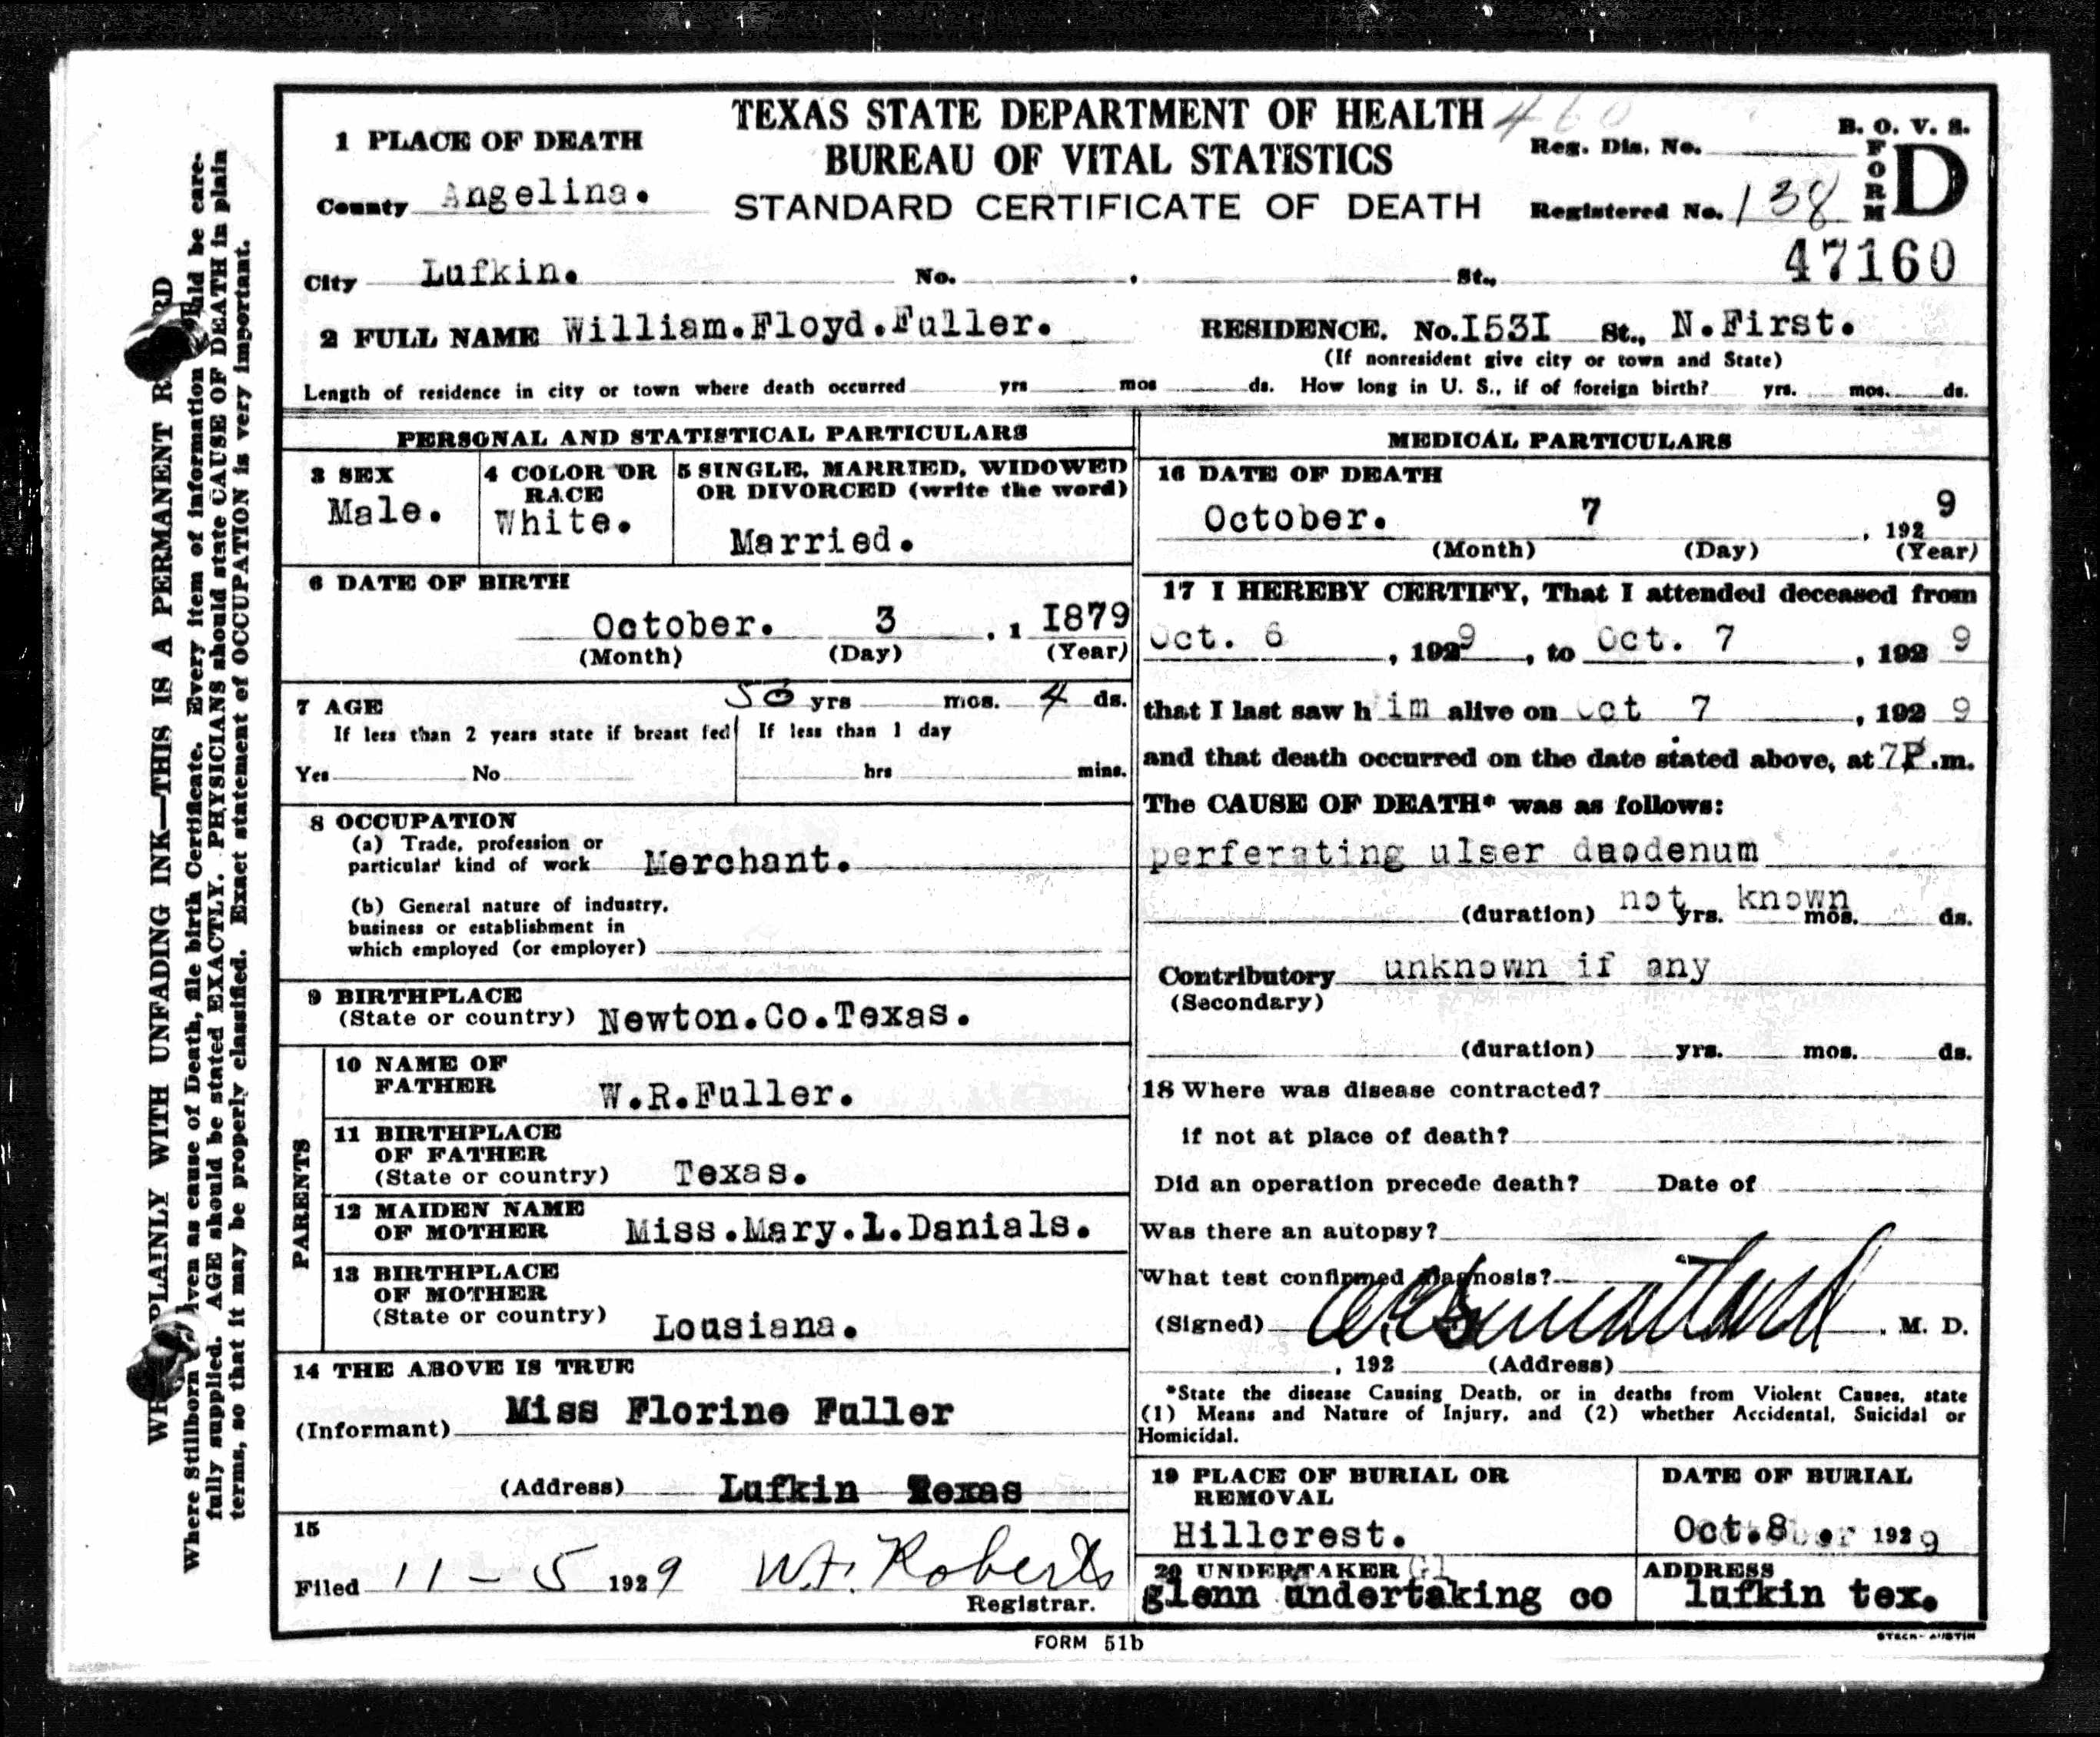 TEXAS STATE DEPARTMENT OF HEALTH
BUREAU OF VITAL STATISTICS
STANDARD CERTIFICATE OF DEATH
460
Reg. Dis. No.
Registered No. 138
B. O. V. S.
FORM D
47160
1 PLACE OF DEATH
County Angelina.
City Lufkin. No. St.,
2 FULL NAME William.Floyd.Fuller. RESIDENCE. No.I53I St., N.First.
(If nonresident give city or town and State)
Length of residence in city or town where death occurred yrs mos ds. How long in U. S., if of foreign birth? yrs. mos. ds.
PERSONAL AND STATISTICAL PARTICULARS
3 SEX
Male.
4 COLOR OR RACE
White.
5 SINGLE, MARRIED, WIDOWED
OR DIVORCED (write the word)
Married.
6 DATE OF BIRTH
October. 3 , 1 I879
(Month) (Day) (Year)
7 AGE 50 yrs mos. 4 ds.
If less than 2 years state if breast fed
Yes No
If less than 1 day
hrs mins.
8 OCCUPATION
(a) Trade, profession or
particular kind of work Merchant.
(b) General nature of industry,
business or establishment in
which employed (or employer)
9 BIRTHPLACE
(State or country) Newton.Co.Texas.
PARENTS
10 NAME OF
FATHER W.R.Fuller.
11 BIRTHPLACE
OF FATHER
(State or country) Texas.
12 MAIDEN NAME
OF MOTHER Miss.Mary.L.Danials.
13 BIRTHPLACE
OF MOTHER
(State or country) Lousiana.
14 THE ABOVE IS TRUE
(Informant) Miss Florine Fuller
(Address) Lufkin Texas
15
Filed 11-5 1929 W.F. Roberts
Registrar.
MEDICAL PARTICULARS
16 DATE OF DEATH
October. 7 , 192 9
(Month) (Day) (Year)
17 I HEREBY CERTIFY, That I attended deceased from
Oct. 6 , 1929 , to Oct. 7 , 192 9
that I last saw h im alive on Oct 7 , 192 9
and that death occurred on the date stated above, at 7P.m.
The CAUSE OF DEATH* was as follows:
perferating ulser duodenum
(duration) not yrs. known mos. ds.
Contributory unknown if any
(Secondary)
(duration) yrs. mos. ds.
18 Where was disease contracted?
if not at place of death?
Did an operation precede death? Date of
Was there an autopsy?
What test confirmed diagnosis?
(Signed) , M. D.
, 192 (Address)
*State the disease Causing Death, or in deaths from Violent Causes, state
(1) Means and Nature of Injury, and (2) whether Accidental, Suicidal or
Homicidal.
19 PLACE OF BURIAL OR
REMOVAL
Hillcrest.
DATE OF BURIAL
Oct.8 1929
20 UNDERTAKER
glenn undertaking co
ADDRESS
lufkin tex.
FORM 51b
STECK-AUSTIN
WRITE PLAINLY WITH UNFADING INK—THIS IS A PERMANENT RECORD
Where Stillborn given as cause of Death, file birth Certificate. Every item of information should be care-
fully supplied. AGE should be stated EXACTLY. PHYSICIANS should state CAUSE OF DEATH in plain
terms, so that it may be properly classified. Exact statement of OCCUPATION is very important.